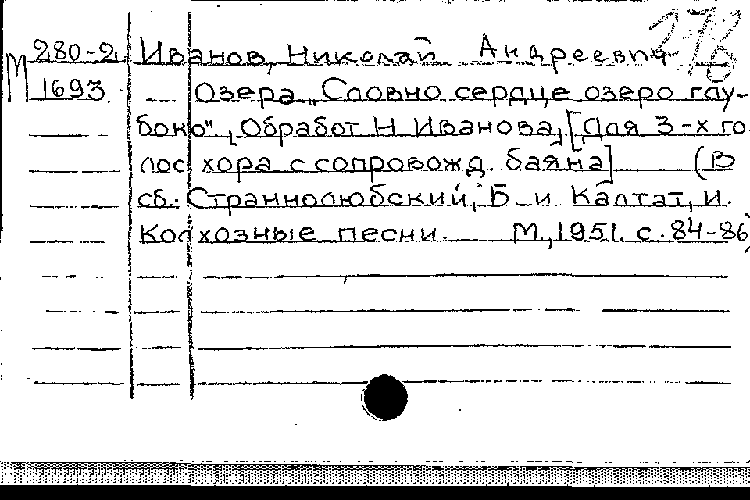 278
М 280-2 Иванов, Николай Андреевич
1693 Озера „Словно сердце озеро глу-
боко", Обработ Н Иванова, [Для 3-х го
лос хора с сопровожд. баяна] (В
сб.: Страннолюбский, Б и Калтат, И.
Колхозные песни. М., 1951. с. 84-86)